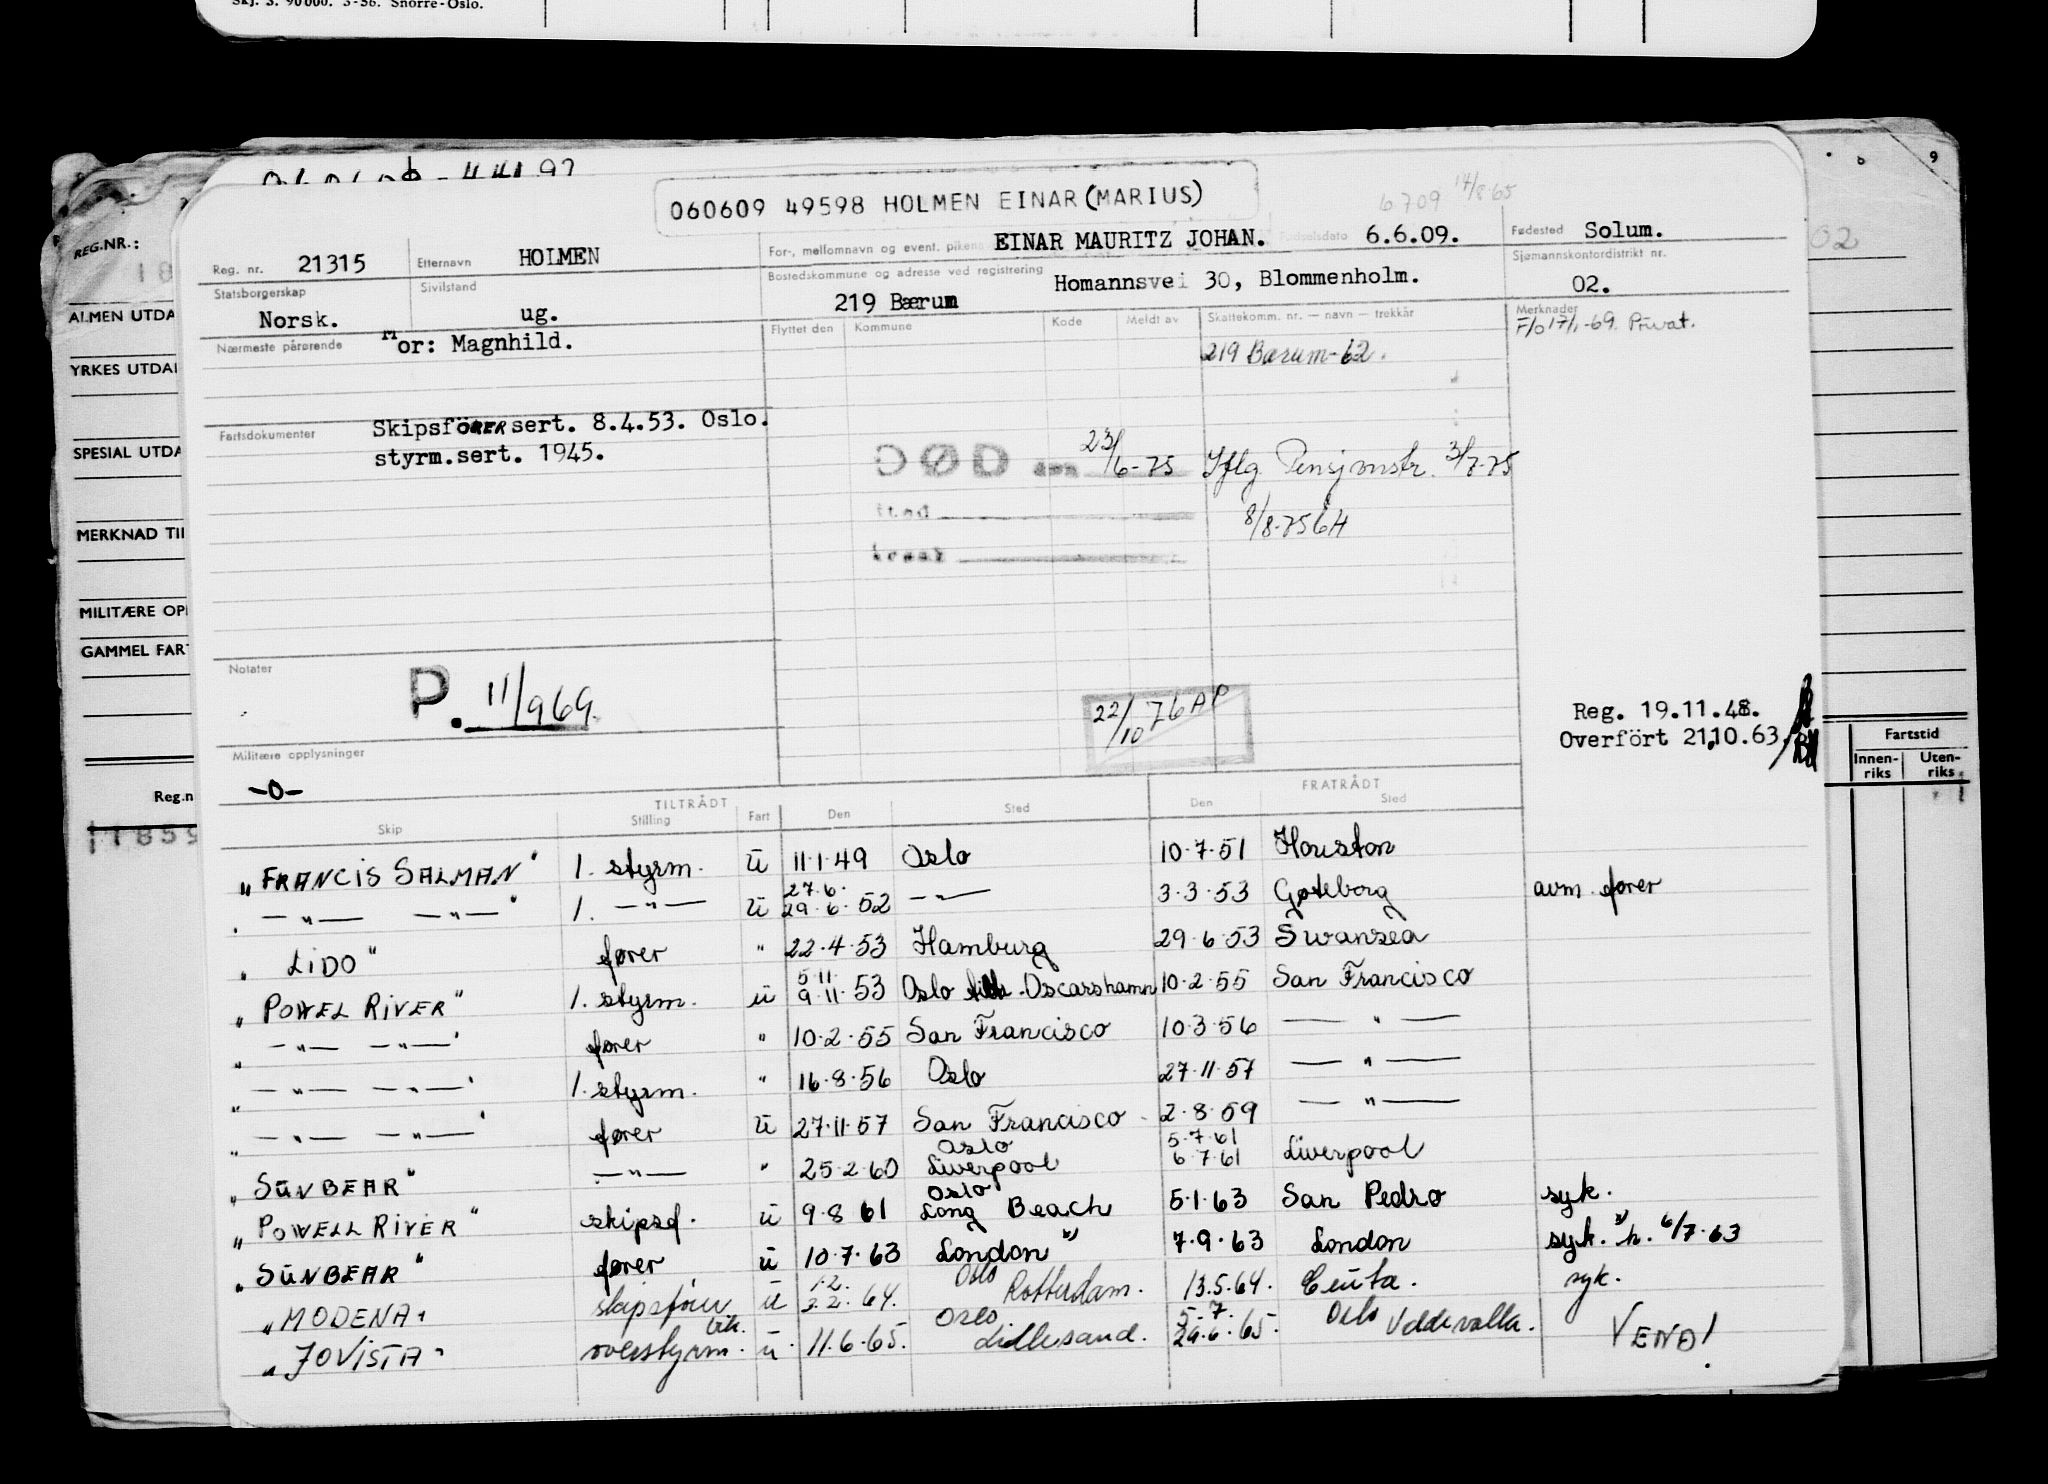 Skj. S. 90000. 3-56. Snorre-Oslo.
060609 49598 HOLMEN EINAR (MARIUS)
6709 14/8-65
REG.NR.:
Reg. nr. 21315 Etternavn HOLMEN For-, mellomnavn og event. pikena EINAR MAURITZ JOHAN. Fødselsdato 6.6.09. Fødested Solum.
Statsborgerskap Norsk. Sivilstand ug. Bostedskommune og adresse ved registrering 219 Bærum Homannsvei 30, Blommenholm. Sjømannskontordistrikt nr. 02.
Nærmeste pårørende Mor: Magnhild. Flyttet den Kommune Kode Meldt av Skattekomm. nr. — navn — trekkår Merknader
F/o 17/1-69. Privat.
219 Bærum-62.
ALMEN UTDA
YRKES UTDA
SPESIAL UTDA
MERKNAD TIL
MILITÆRE OP
GAMMEL FAR
Fartsdokumenter Skipsförer sert. 8.4.53. Oslo.
styrm.sert. 1945.
DØD den 23/6-75 Iflg Pensjonstr. 3/7-75
sted
8/8-75 GH
Notater P. 11/969.
22/10 76 AP
Reg. 19.11.48.
Overført 21.10.63.
Militære opplysninger
-0-
Fartstid
Innenriks Utenriks
Reg.n
TILTRÅDT FRATRÅDT
Skip Stilling Fart Den Sted Den Sted
„FRANCIS SALMAN" 1. styrm. U 11.1.49 Oslo 10.7.51 Houston
— „ — — „ —" 1. — „ — U 27.6. 29.6.52 — „ — 3.3.53 Gøteborg avm. fører
„LIDO" fører " 22.4.53 Hamburg 29.6.53 Swansea
„POWEL RIVER" 1. styrm. U 5.11. 9.11.53 Oslo Oscarshamn 10.2.55 San Francisco
„ — „ — — „ —" fører " 10.2.55 San Francisco 10.3.56 — „ —
„ — „ — — „ —" 1. styrm. " 16.8.56 Oslo 27.11.57 — „ —
„ — „ — — „ —" fører U 27.11.57 San Francisco 2.8.59 — „ —
„SUNBEAR" — „ — " 25.2.60 Oslo Liverpool 5.7.61 6.7.61 Liverpool
„POWELL RIVER" skipsf. U 9.8.61 Oslo Long Beach 5.1.63 San Pedro syk.
„SUNBEAR" fører U 10.7.63 London x) 7.9.63 London syk. x) h. 6/7.63
„MODENA" skipsfører U 1.2. 3.2.64. Oslo Rotterdam. 13.5.64. Ceuta. syk.
„JOVISTA" overstyrm. vik. U 11.6.65. Oslo Lillesand. 5.7. 29.6.65. Oslo Uddevalla. VEND!